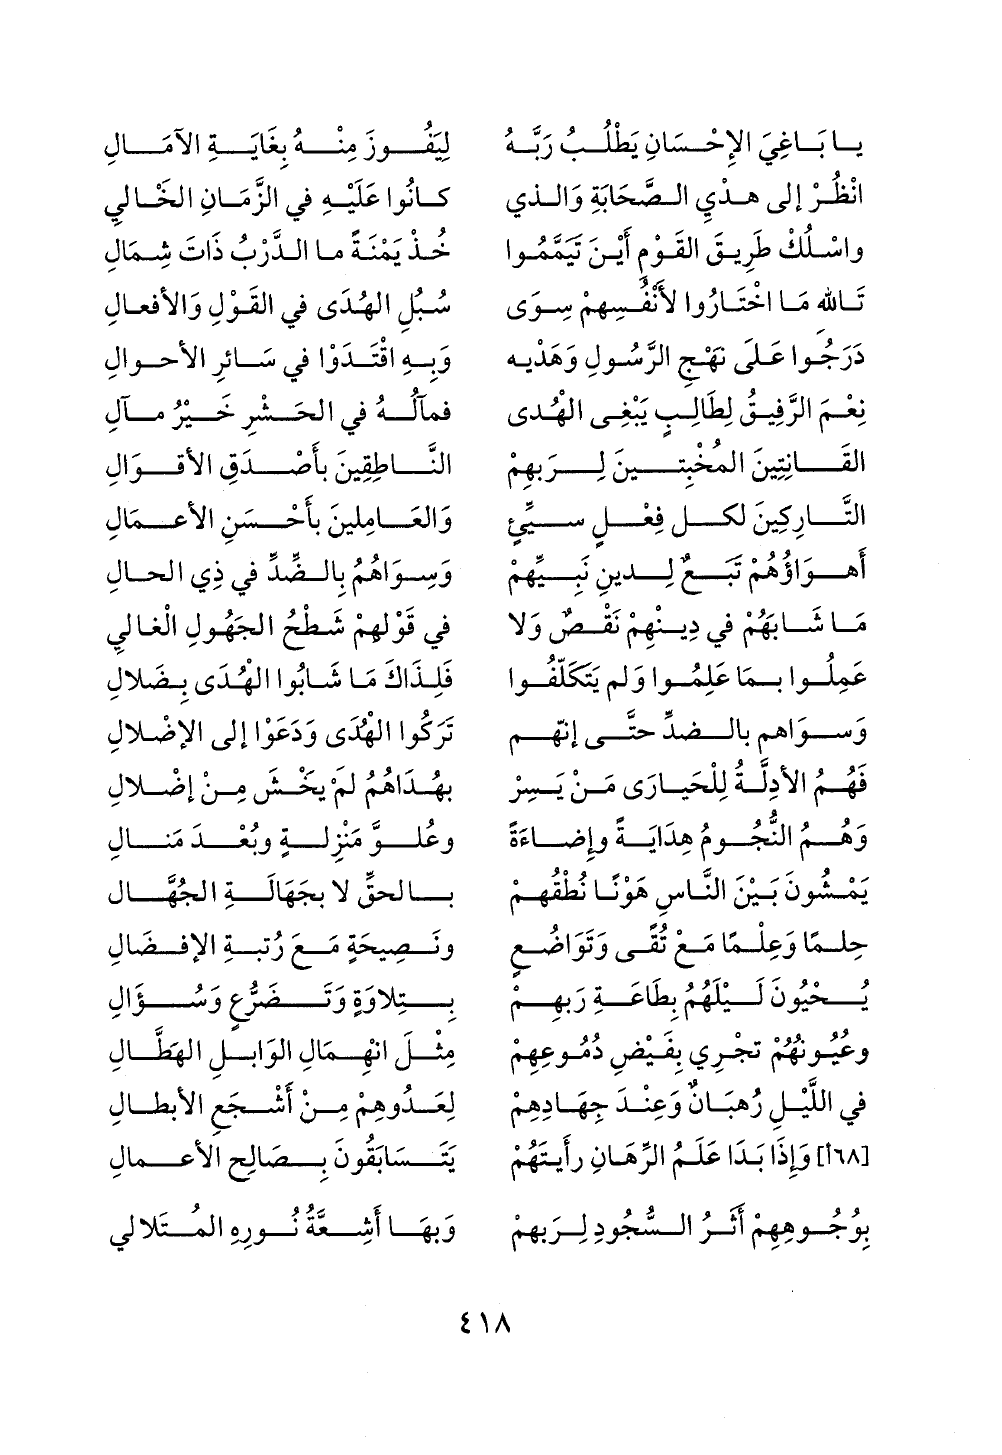 يا بَاغِيَ الإِحْسَانِ يَطْلُبُ رَبَّهُ لِيَفُوزَ مِنْهُ بِغَايَةِ الآمَالِ
انْظُرْ إلى هدْيِ الصَّحَابَةِ وَالذي كانُوا عَلَيْهِ في الزَّمَانِ الخَالي
واسْلُكْ طَرِيقَ القَوْمِ أَيْنَ تَيَمَّمُوا خُذْ يَمْنَةً ما الدَّرْبُ ذَاتَ شِمَالِ
تَاللهِ مَا اخْتَارُوا لأَنْفُسِهِمْ سِوَى سُبُلِ الهُدَى في القَوْلِ وَالأفعالِ
دَرَجُوا عَلَى نَهْجِ الرَّسُولِ وَهَدْيِهِ وَبِهِ اقْتَدَوْا في سَائرِ الأحوالِ
نِعْمَ الرَّفيقُ لِطَالِبٍ يَبْغي الهُدى فمآلُهُ في الحَشْرِ خَيْرُ مآلِ
القَانِتِينَ المُخْبِتِينَ لِرَبِهِمْ النَّاطِقِينَ بأَصْدَقِ الأقوَالِ
التَّارِكِينَ لكلِ فِعْلٍ سيِّئٍ وَالعَامِلينَ بأَحْسَنِ الأعمَالِ
أَهواؤُهُمْ تَبَعٌ لِدينِ نَبِيِّهِمْ وَسِوَاهُمُ بالضِّدِّ في ذِي الحالِ
مَا شَابَهُمْ في دِينِهِمْ نَقْصٌ وَلا في قَوْلِهِمْ شَطْحُ الجَهُولِ الغالي
عَمِلُوا بمَا عَلِمُوا وَلم يَتَكَلَّفُوا فَلِذَاكَ مَا شَابُوا الهُدَى بِضَلالِ
وَسِوَاهم بالضدِّ حتَّى إنّهم تَرَكُوا الهُدَى وَدَعَوْا إلى الإضْلالِ
فَهُمُ الأدِلَّةُ لِلْحَيارَى مَنْ يَسِرْ بهُدَاهُمُ لمْ يَخْشَ مِنْ إضْلالِ
وَهُمُ النُّجُومُ هِدَايَةً وإضَاءَةً وعُلوَّ مَنْزِلةٍ وبُعْدَ مَنَالِ
يَمْشُونَ بَيْنَ النَّاسِ هَوْنًا نُطْقُهمْ بالحَقِّ لا بجَهَالَةِ الجُهَّالِ
حِلمًا وَعِلْمًا مَعْ تُقًى وَتَوَاضُعٍ ونَصِيحَةٍ مَعَ رُتبَةِ الإفضَالِ
يُحْيُونَ لَيْلَهُمُ بِطَاعَةِ رَبهِمْ بِتِلاوَةٍ وَتَضَرُّعٍ وَسُؤَالِ
وعُيُونُهُمْ تجْرِي بفَيْضِ دُمُوعِهِمْ مِثْلَ انْهِمَالِ الوَابلِ الهَطَّالِ
في اللَّيْلِ رُهبَانٌ وَعِنْدَ جِهَادِهِمْ لِعَدُوهِمْ مِنْ أَشْجَعِ الأبطالِ
[١٦٨أ] وَإذَا بَدَا عَلَمُ الرِّهَانِ رأَيتَهُمْ يَتَسَابَقُونَ بِصَالِحِ الأعمالِ
بوُجُوهِهِمْ أَثَرُ السُّجُودِ لِرَبهِمْ وَبهَا أَشِعَّةُ نُورِهِ المُتَلالي
٤١٨